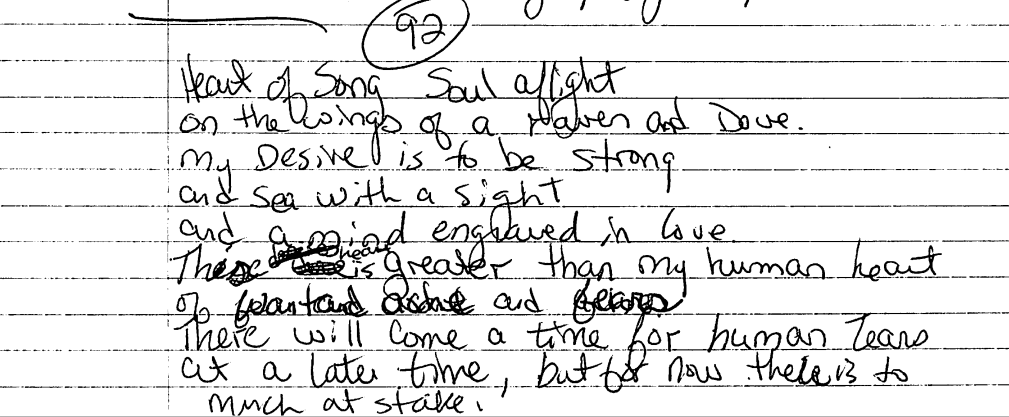 92
Heart of Song Soul aflight
on the wings of a Raven and Dove.
my Desire is to be strong
and sea with a sight
and a mind engraved in love.
is greater than my human heart
of and and fears
There will Come a time for human Tears
at a later time, but for now there is to
much at stake.